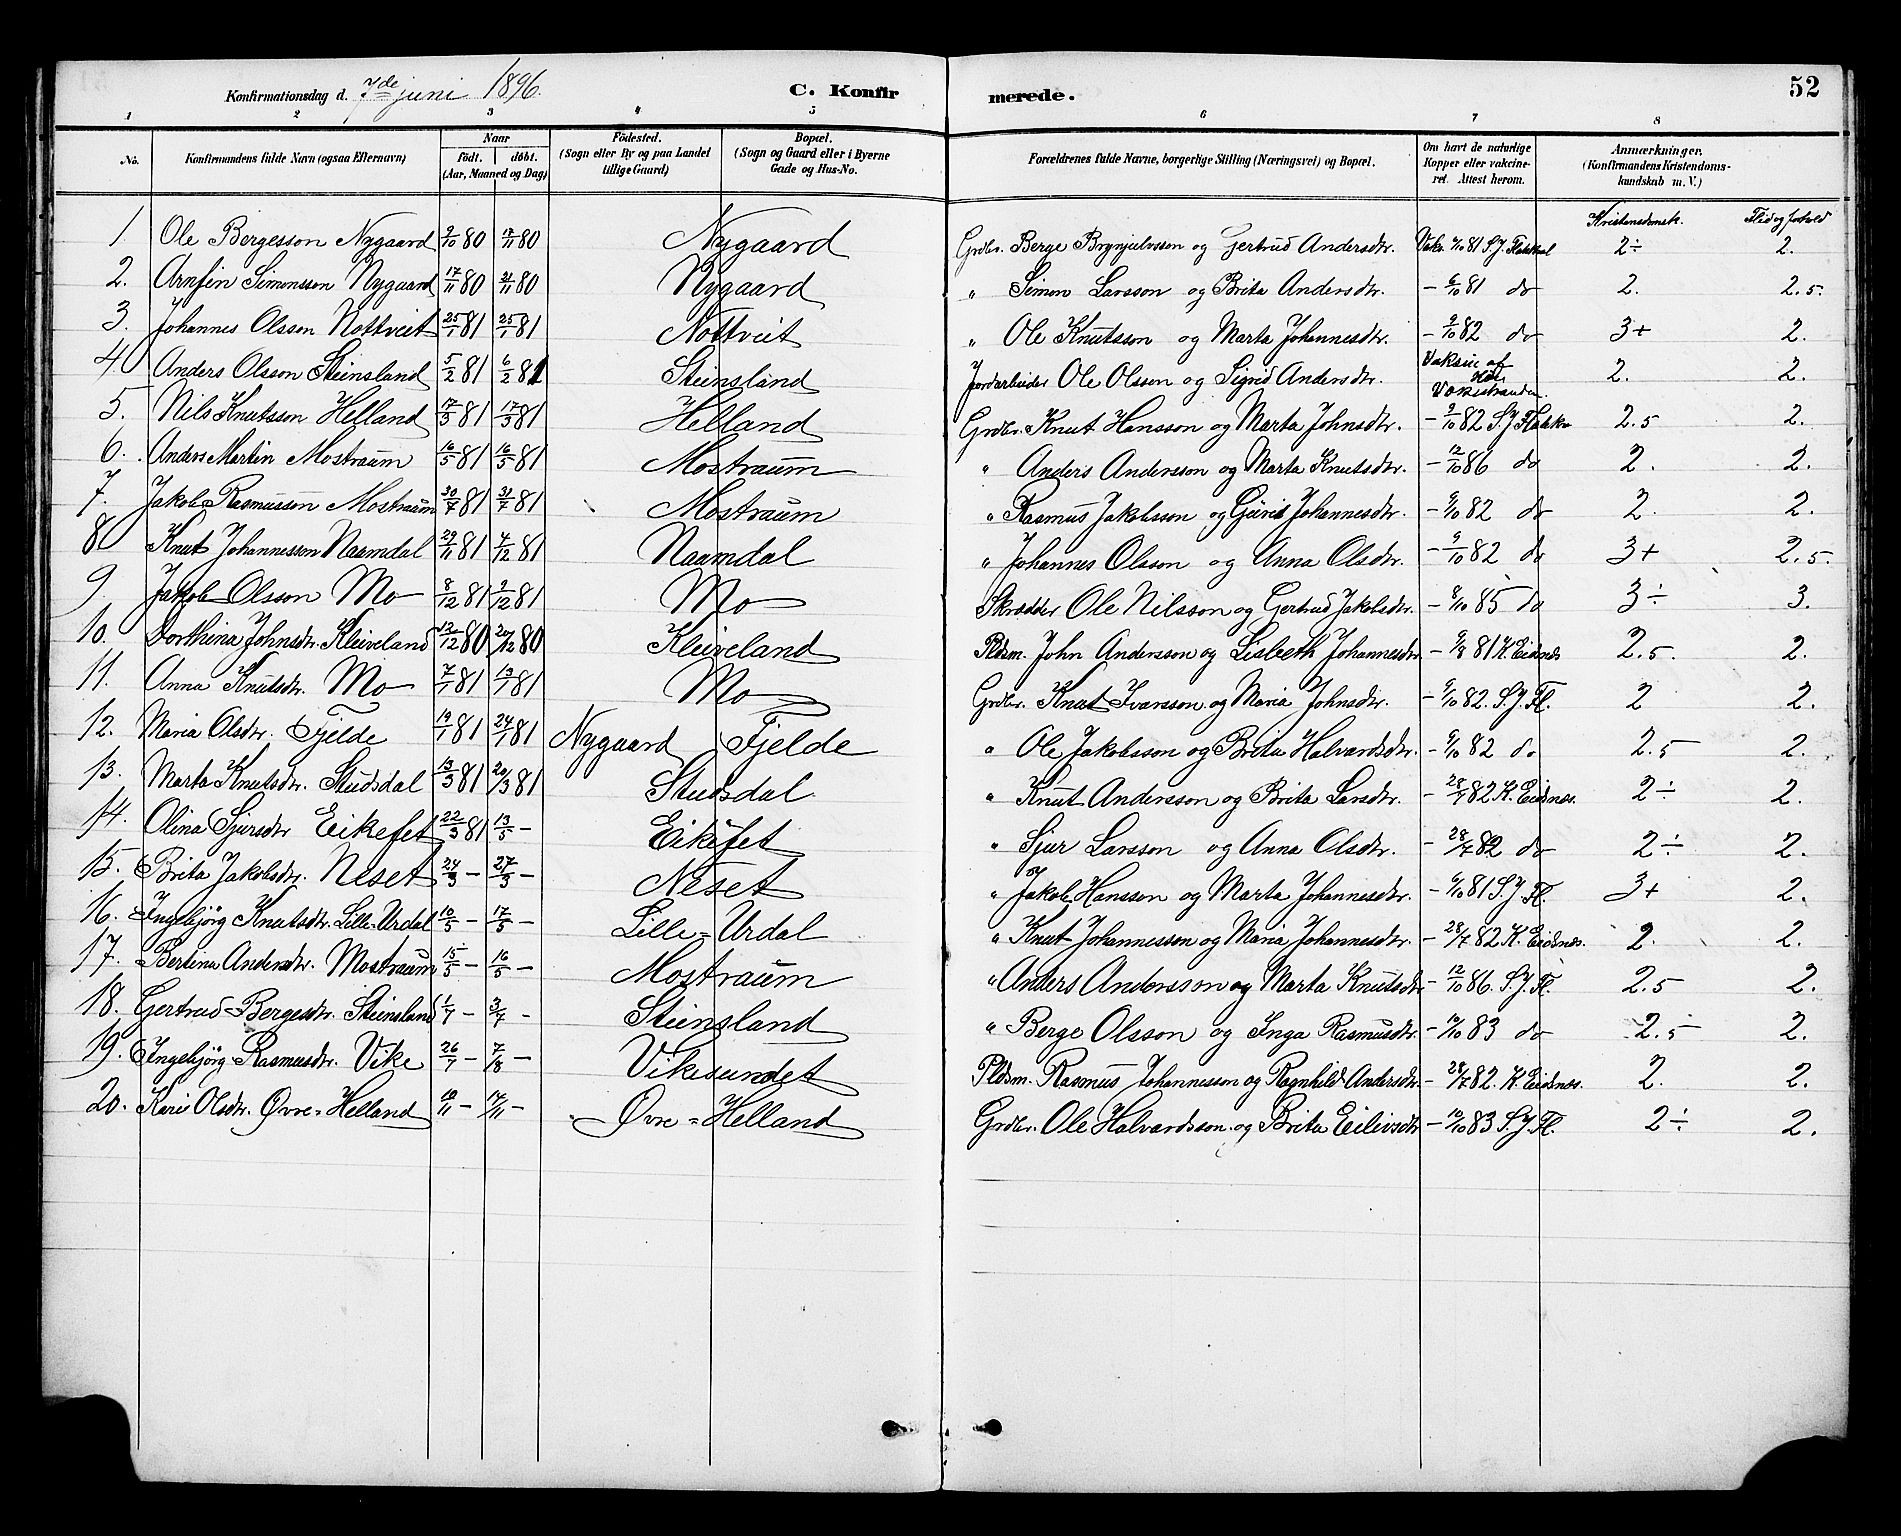 Konfirmationsdag d. 7de juni 1896. C. Konfirmerede. 52
1 2 3 4 5 6 7 8
No. Konfirmandens fulde Navn (ogsaa Efternavn) Naar födt. döbt. (Aar, Maaned og Dag) Födested. (Sogn eller By og paa Landet tillige Gaard) Bopæl. (Sogn og Gaard eller i Byerne Gade og Hus-No. Forældrenes fulde Navne, borgerlige Stilling (Næringsvei) og Bopæl. Om havt de naturlige Kopper eller vakcineret. Attest herom. Anmærkninger, (Konfirmandens Kristendomskundskab m. V.)
Kristendomsk. Flid og forhold
1. Ole Bergesson Nygaard 9/10 80 17/11 80 Nygaard Grdbr. Berge Brynjulvsson og Gertrud Andersdtr. Vakc. 9/10 81 S.J. 2÷ 2.
2. Arnfin Simonsson Nygaard 17/11 80 21/11 80 Nygaard " Simon Larsson og Brita Andersdtr. - 6/10 81 do 2. 2.5.
3. Johannes Olsson Nottveit 25/1 81 25/1 81 Nottveit " Ole Knutsson og Marta Johannesdtr. - 9/10 82 do 3+ 2.
4 Anders Olsson Steinsland 5/2 81 6/2 81 Steinsland Jordarbeider Ole Olsson og Sigrid Andersdtr. Vaksin af 2. 2.
5. Nils Knutsson Helland 17/3 81 17/3 81 Helland Grdbr. Knut Hansson og Marta Johnsdtr. - 9/10 82 S.J. 2.5 2.
6. Anders Martin Mostraum 16/5 81 16/5 81 Mostraum " Anders Andersson og Marta Knutsdtr. - 12/10 86 do 2. 2.
7. Jakob Rasmusson Mostraum 30/7 81 31/7 81 Mostraum " Rasmus Jakobsson og Guri Johannesdtr. - 9/10 82 do 2. 2.
8 Knut Johannesson Naamdal 29/11 81 4/12 81 Naamdal " Johannes Olsson og Anna Olsdtr. - 9/10 82 do 3+ 2.5.
9. Jakob Olsson Mo 8/12 81 9/12 81 Mo Skrædder Ole Nilsson og Gertrud Jakobsdtr. - 8/10 85 do 3÷ 3.
10. Dorthina Johnsdtr. Kleiveland 13/12 80 20/12 80 Kleiveland Pldsm. John Andersson og Lisbeth Johannesdtr. - 9/8 81 K. Eidsnes 2.5. 2.
11. Anna Knutsdtr. Mo 7/1 81 13/1 81 Mo Grdbr. Knut Ivarsson og Maria Johnsdtr. - 9/10 82. S.J. Fl. 2 2.
12. Maria Olsdtr. Fjelde 19/1 81 24/1 81 Nygaard Fjelde " Ole Jakobsson og Brita Halvardsdtr. - 9/10 82 do 2.5 2.
13. Marta Knutsdtr. Studsdal 13/3 81 20/3 81 Studsdal " Knut Andersson og Brita Larsdtr. - 28/7 82 K. Eidsnes. 2÷ 2.
14. Olina Sjursdtr Eikefet 22/3 81 13/5 - Eikefet " Sjur Larsson og Anna Olsdtr. - 28/7 82 do 2÷ 2.
15. Brita Jakobsdtr. Neset 24/3 - 27/3 - Neset " Jakob Hansson og Marta Johannesdtr. - 6/10 81 S.J. Fl. 3+ 2.
16. Ingebjörg Knutsdtr. Lille-Urdal 10/5 - 17/5 - Lille-Urdal " Knut Johannesson og Maria Johannesdtr. - 28/7 82 K. Eidsnes. 2. 2.
17. Bertina Andersdtr. Mostraum 15/5 - 16/5 - Mostraum " Anders Andersson og Marta Knutsdtr. - 12/10 86. S.J. Fl. 2.5 2.
18. Gertrud Bergesdtr. Steinsland 1/7 - 3/7 - Steinsland " Berge Olsson og Inga Rasmusdtr. - 10/10 83 do 2.5 2.
19. Ingebjörg Rasmusdtr. Vike 26/7 - 7/8 - Vikesundet Pldsm. Rasmus Johannesson og Ragnhild Andersdtr. - 28/7 82. K. Eidsnes. 2. 2.
20. Kari Olsdtr. Øvre-Helland 10/11 - 17/11 - Øvre-Helland Grdbr. Ole Halvardsson og Brita Eilivsdtr. - 10/10 83 S.J. Fl. 2÷ 2.